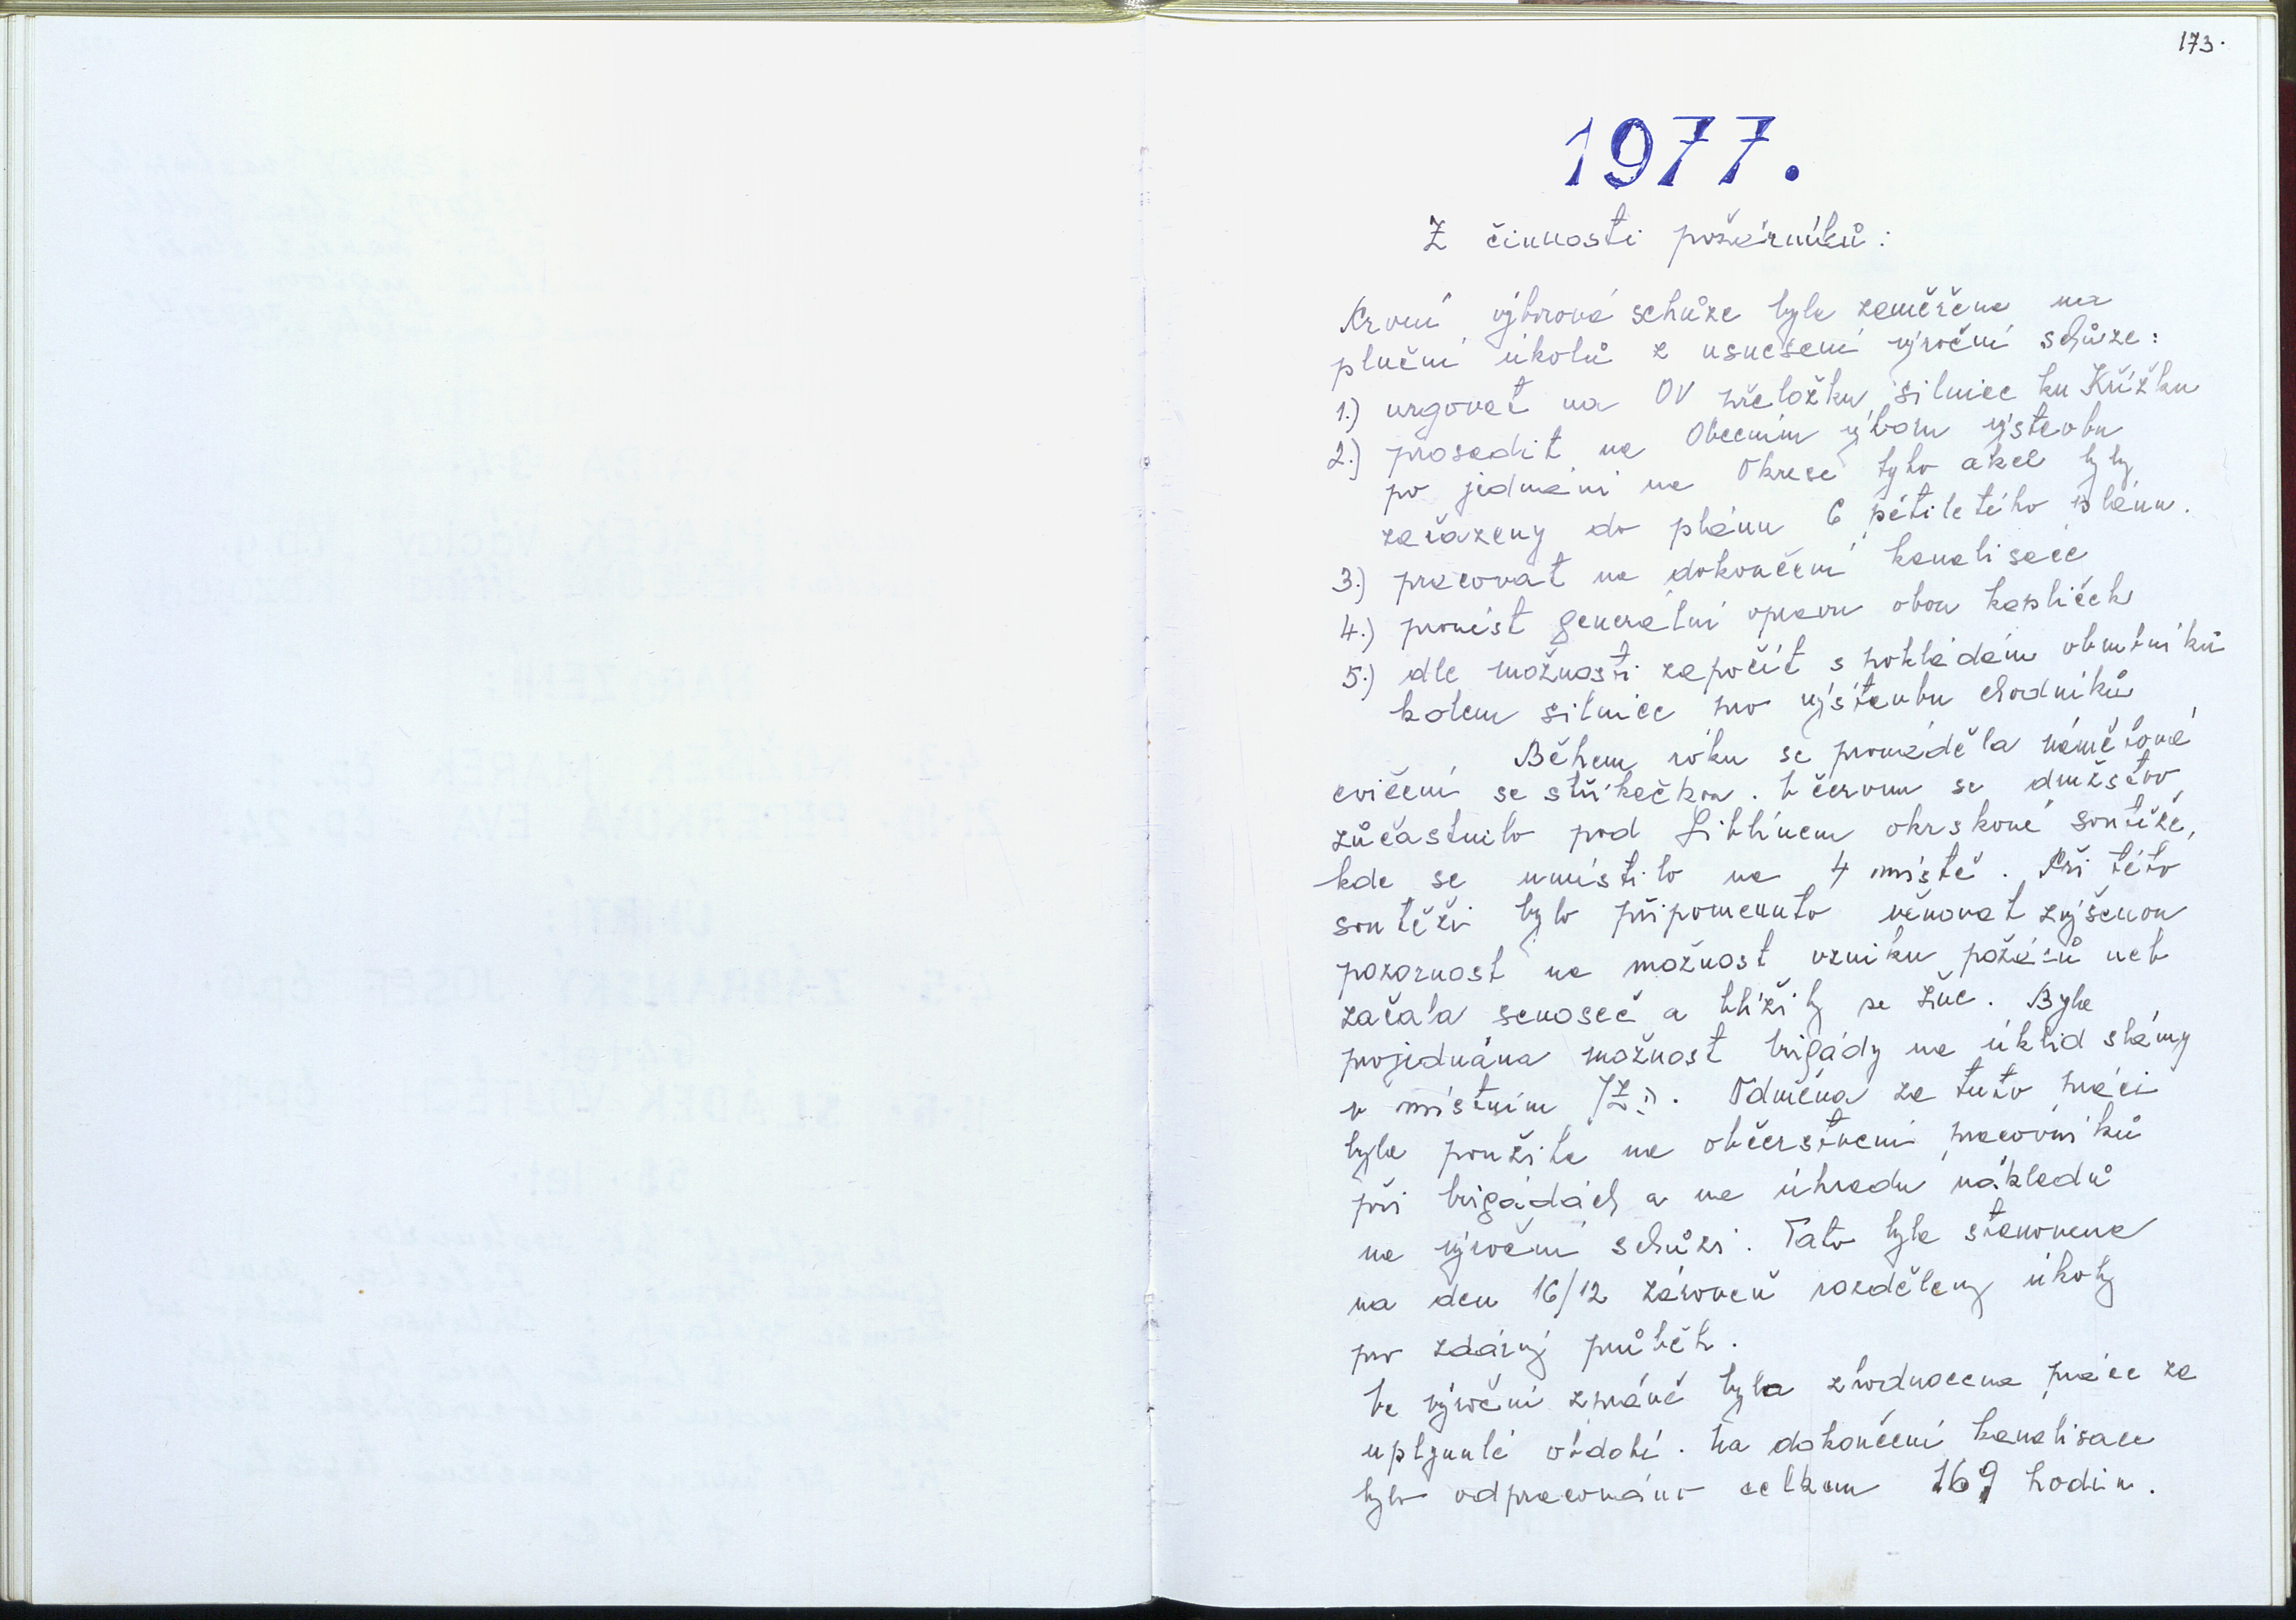 173.
1977.
Z činnosti požárníků:
První výborová schůze byla zaměřena na
plnění úkolů z usnesení výroční schůze:
1.) urgovat na OV přeložku silnice ku Křížku
2.) prosadit na Obecním výboru výstavbu
po jednání na Okrese tyto akce byly
zařazeny do plánu 6 pětiletého plánu.
3.) pracovat na dokončení kanalisace
4.) provést generální opravu obou kapliček
5.) dle možnosti započít s pokládám obrubníků
kolem silnice pro výstavbu chodníků
Během roku se prováděla námětová
cvičení se stříkačkou. V červnu se družstvo
zůčastnilo pod Liblínem okrskové soutěže,
kde se umístilo na 4 místě. Při této
soutěži bylo připomenuto věnovat zvýšenou
pozornost na možnost vzniku požárů neb
začala senoseč a blížily se žně. Byla
projednána možnost brigády na úklid slámy
v místním JZD. Odměna za tuto práci
byla použita na občerstvení pracovníků
při brigádách a na úhradu nákladů
na výroční schůzi. Tato byla stanovena
na den 16/12 zároveň rozděleny úkoly
pro zdárný průběh.
Ve výroční zprávě byla zhodnocena práce za
uplynulé období. Na dokončení kanalisace
bylo odpracováno celkem 169 hodin.